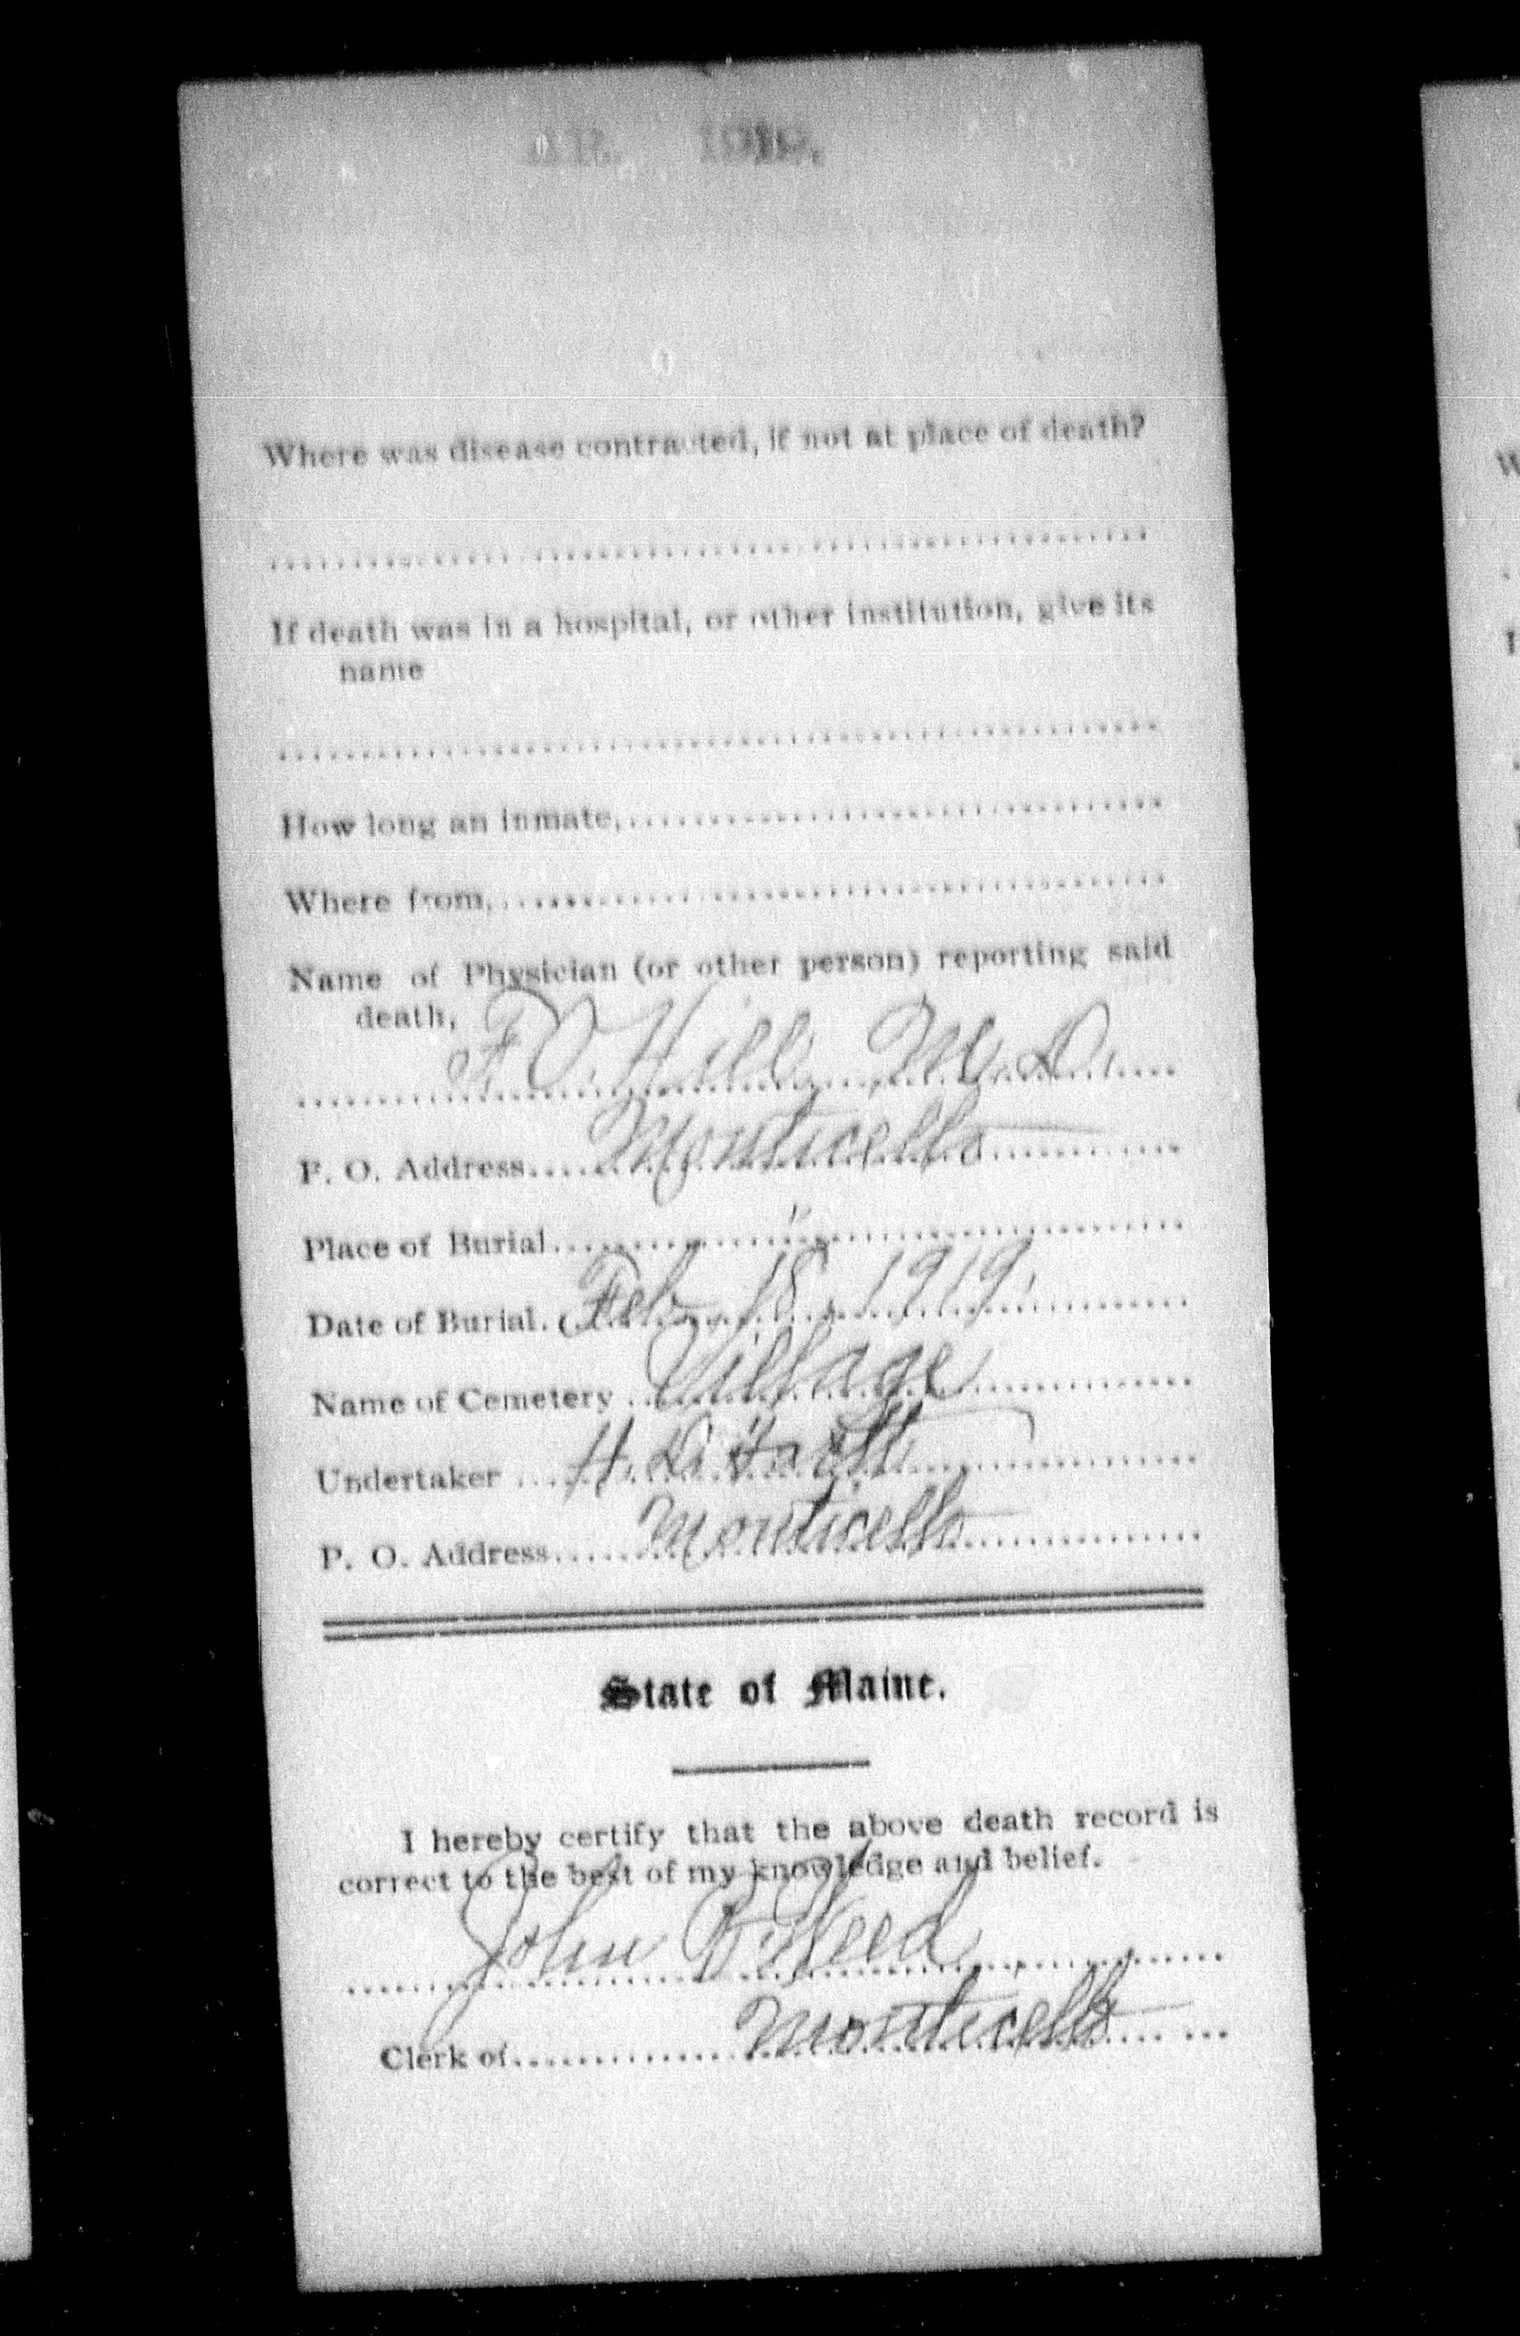 1919.
Where was disease contracted, if not at place of death?
If death was in a hospital, or other institution, give its
name
How long an inmate,
Where from,
Name of Physician (or other person) reporting said
death,
F. O. Hill, M. D.
P. O. Address Monticello
Place of Burial "
Date of Burial. Feb. 18, 1919.
Name of Cemetery Village
Undertaker H. D.
P. O. Address Monticello
State of Maine.
I hereby certify that the above death record is
correct to the best of my knowledge and belief.
John B. Weed
Clerk of Monticello